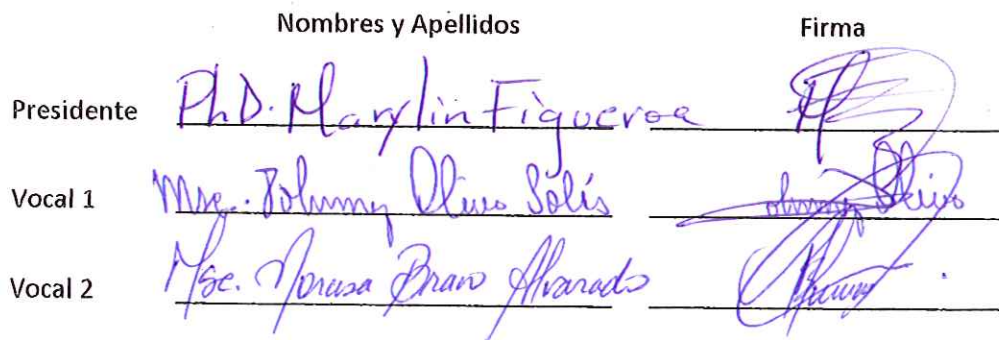 Nombres y Apellidos Firma
Presidente PhD. Marylin Figueroa
Vocal 1 Msc. Johnny Olivo Solís Johnny Olivo
Vocal 2 Msc. Bravo Alvarado